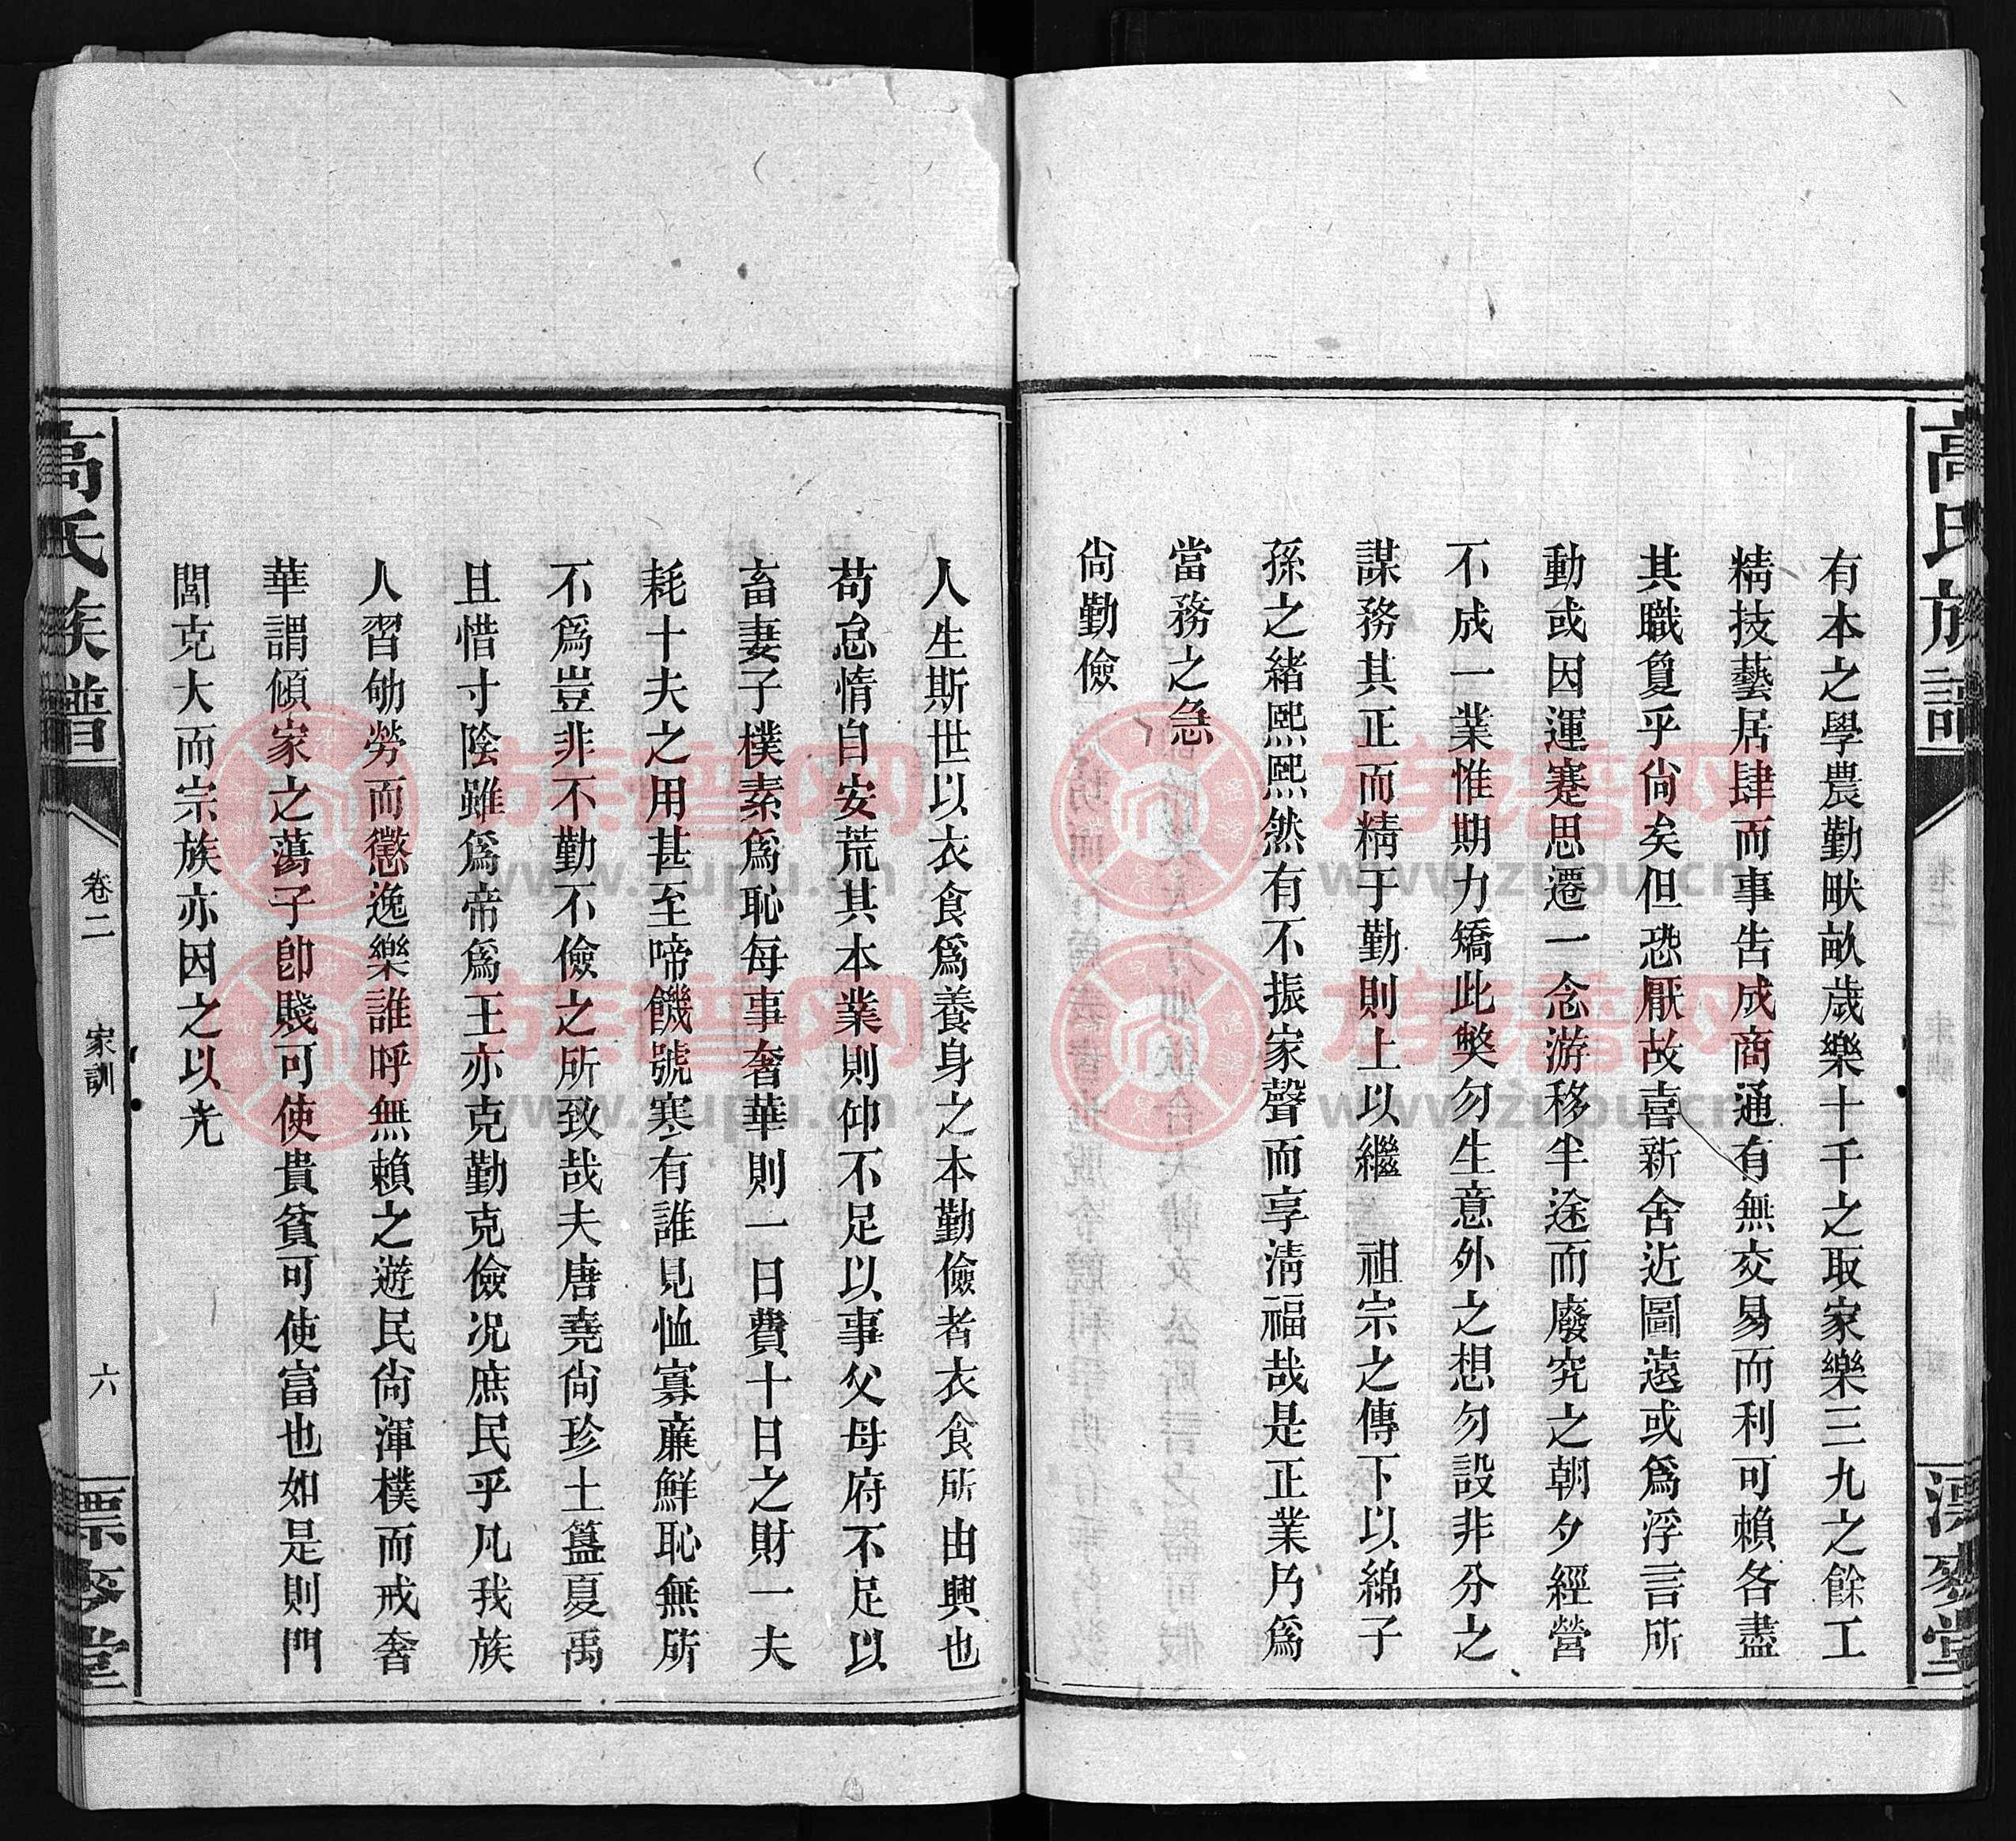 高氏族譜
漂麥堂
有本之學農勤畎畝歲樂十千之取家樂三九之餘工
精技藝居肆而事告成商通有無交易而利可賴各盡
其職敻乎尙矣但恐厭故喜新舍近圖遠或爲浮言所
動或因運蹇思遷一念游移半途而廢究之朝夕經營
不成一業惟期力矯此獘勿生意外之想勿設非分之
謀務其正而精于勤則上以繼　祖宗之傳下以綿子
孫之緒熙熙然有不振家聲而享淸福哉是正業乃爲
當務之急
尙勤儉
人生斯世以衣食爲養身之本勤儉者衣食所由興也
苟怠惰自安荒其本業則仰不足以事父母府不足以
畜妻子樸素爲恥每事奢華則一日費十日之財一夫
耗十夫之用甚至啼饑號寒有誰見恤寡亷鮮恥無所
不爲豈非不勤不儉之所致哉夫唐堯尙珍土簋夏禹
且惜寸陰雖爲帝爲王亦克勤克儉况庶民乎凡我族
人習劬勞而懲逸樂誰呼無賴之遊民尙渾樸而戒奢
華謂傾家之蕩子卽賤可使貴貧可使富也如是則門
閭克大而宗族亦因之以光
高氏族譜
卷二
家訓
六
漂麥堂
族譜网
www.zupu.cn
族譜网
www.zupu.cn
族譜网
www.zupu.cn
族譜网
www.zupu.cn